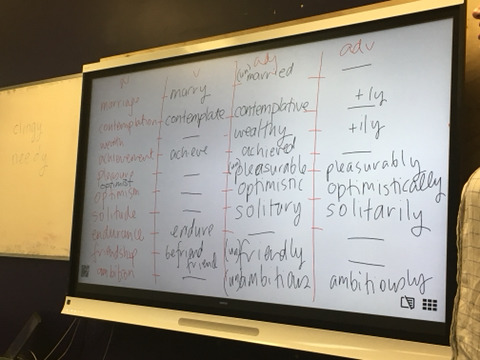 clingy
needy
N v adj adv
marriage marry (un)married —
contemplation contemplate contemplative +ly
wealth — wealthy +ily
achievement achieve achieved —
pleasure — pleasurable pleasurably
optimist
optimism — optimistic optimistically
solitude — solitary solitarily
endurance endure — —
friendship befriend (un)friendly —
friend
ambition — (un)ambitious ambitiously